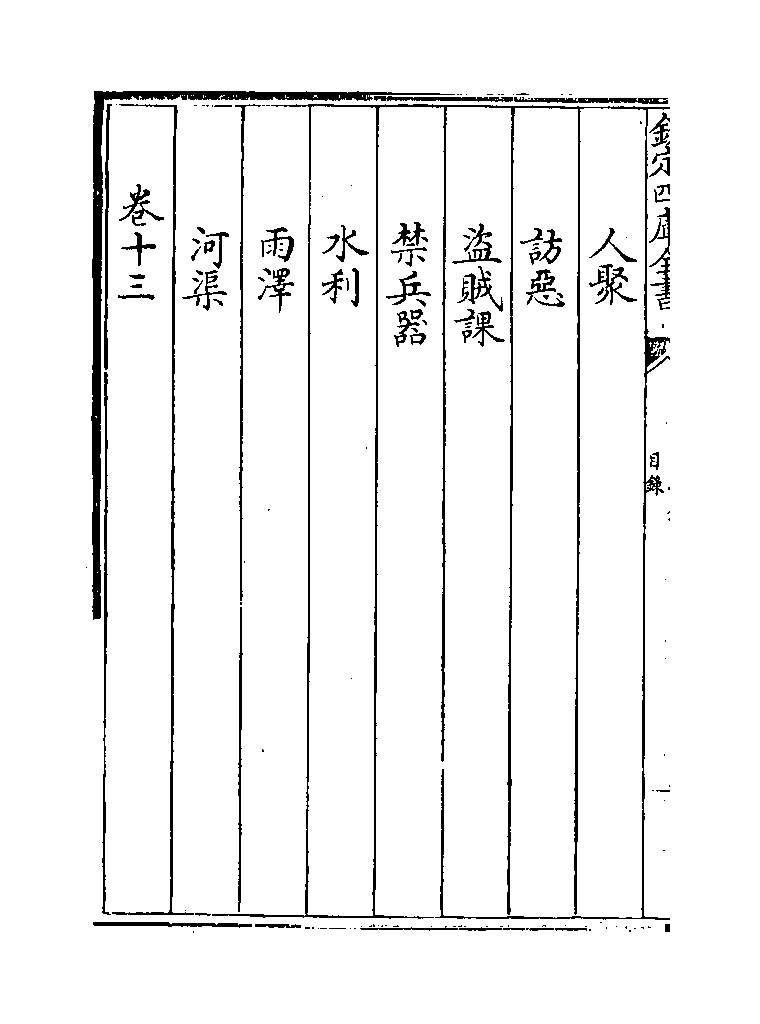 欽定四庫全書
目錄
人聚
訪惡
盜賊課
禁兵器
水利
雨澤
河渠
卷十三